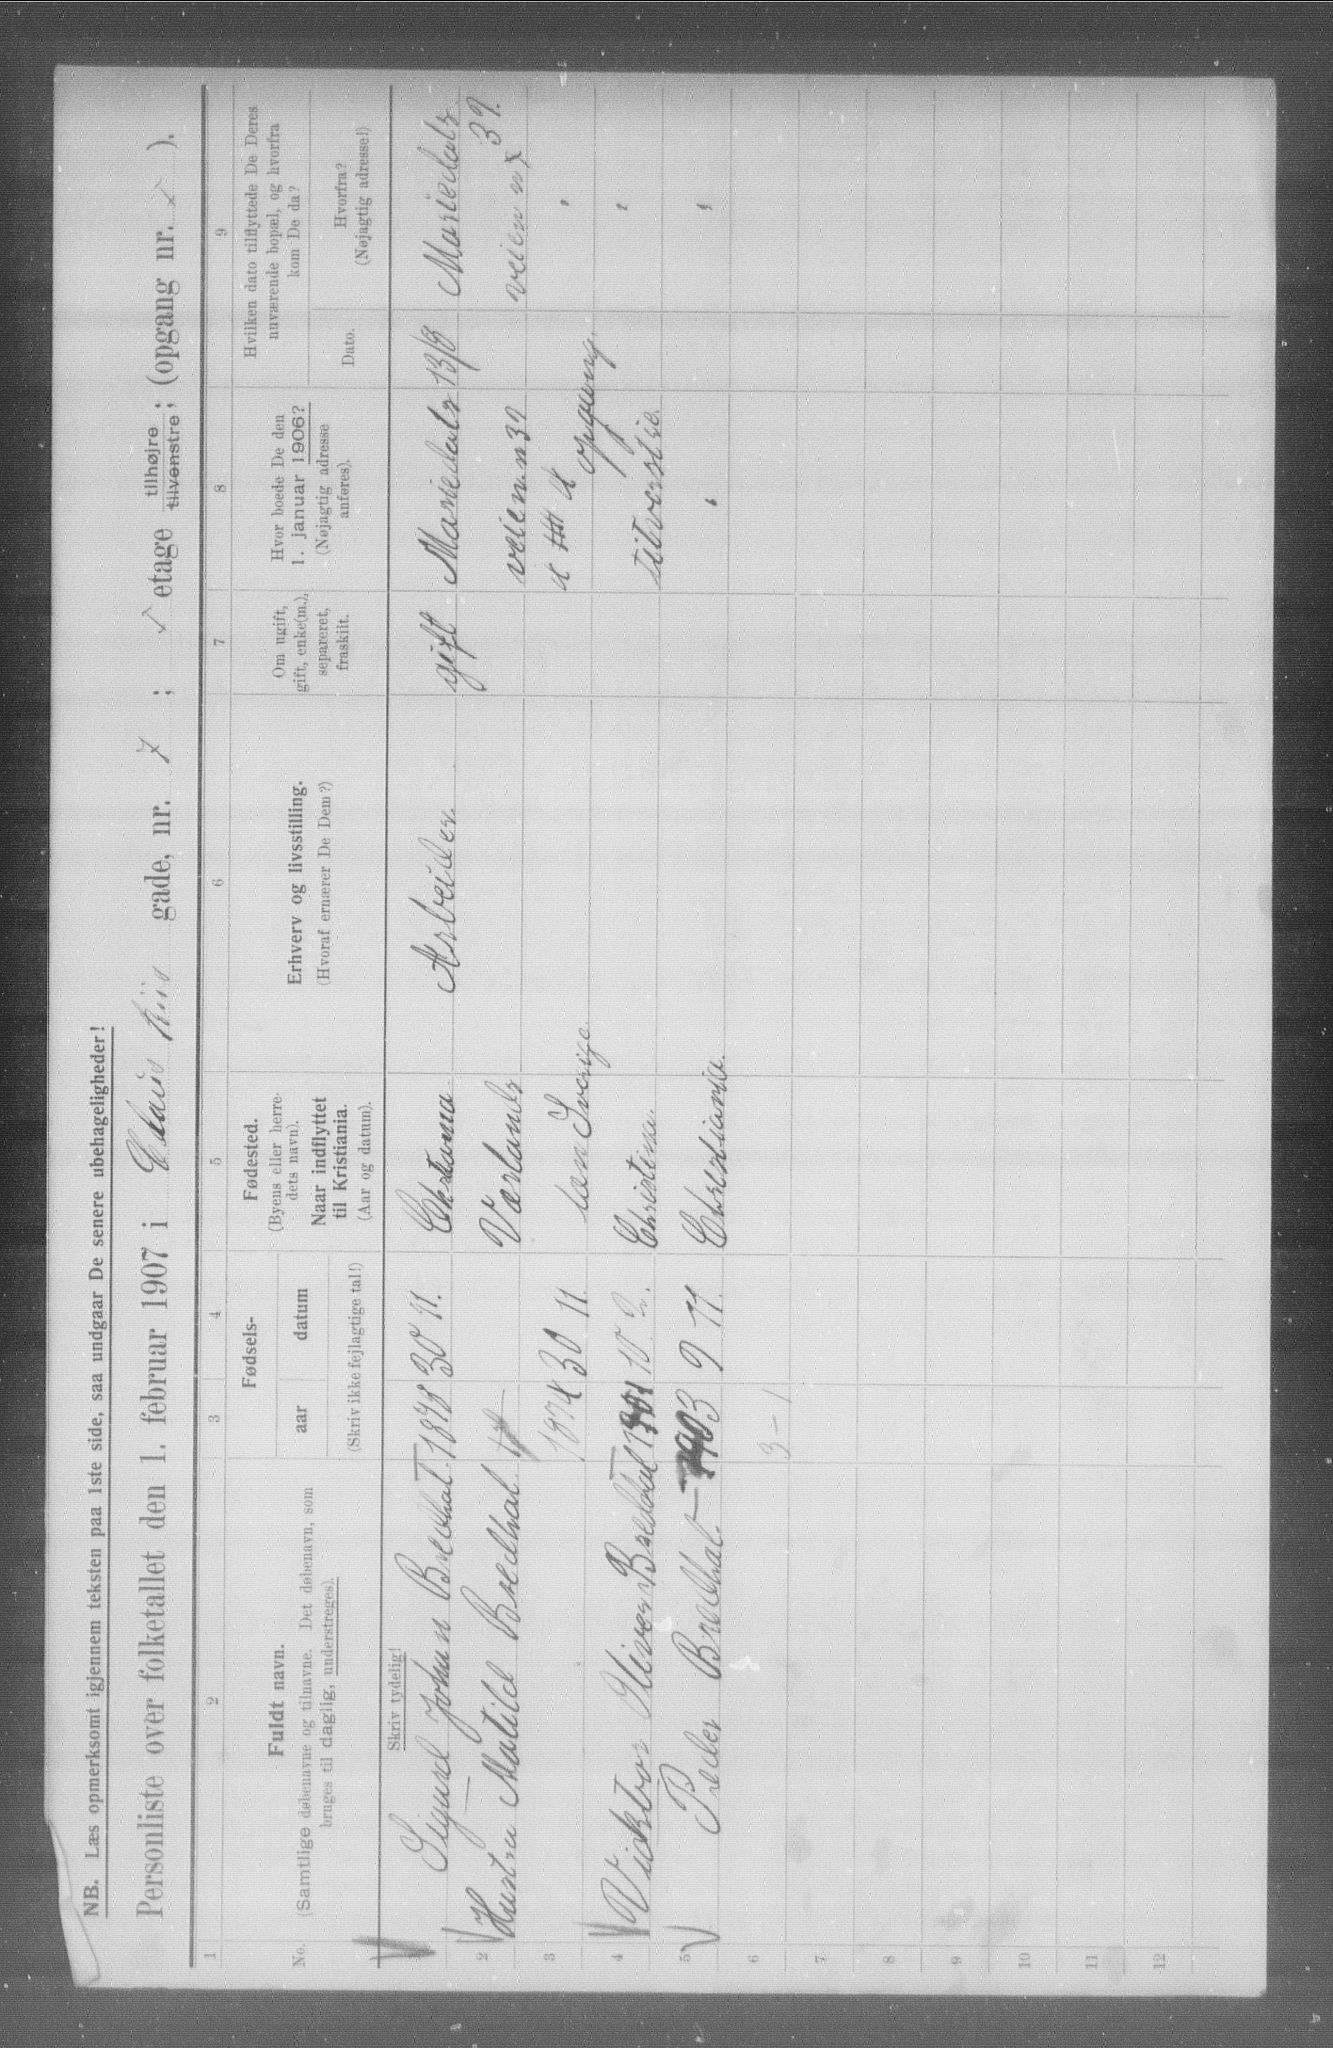 NB. Læs opmerksomt igjennem teksten paa 1ste side, saa undgaar De senere ubehageligheder!
Personliste over folketallet den 1. februar 1907 i Claus Riis gade, nr. 7 ; etage tilhøjre tilvenstre; (opgang nr. ).
1 2 3 4 5 6 7 8 9
No.
Fuldt navn.
(Samtlige døbenavne og tilnavne. Det døbenavn, som
bruges til daglig, understreges).
Fødsels-
aar datum
(Skriv ikke fejlagtige tal!)
Fødested.
(Byens eller herre-
dets navn).
Naar indflyttet
til Kristiania.
(Aar og datum).
Erhverv og livsstilling.
(Hvoraf ernærer De Dem?)
Om ugift,
gift, enke(m.),
separeret,
fraskilt.
Hvor boede De den
1. januar 1906?
(Nøjagtig adresse
anføres).
Hvilken dato tilflyttede De Deres
nuværende bopæl, og hvorfra
kom De da?
Dato.
Hvorfra?
(Nøjagtig adresse!)
Skriv tydelig!
Sigurd Johan Bredhal 1878 30 11. Christania Arbeider. gift Mariedals 13/8 Mariedals
2 Hustru Matild Bredhal Værlands veien n 39 veien n 39.
3 1874 30 11 læn Sverige opgang "
4 Vicktor Oliver Bredahl 1901 10 2. Christina. tilvenstre. "
5 Peder Bredhal 1903 9 11. Christiania. " "
6 3 - 1
7
8
9
10
11
12